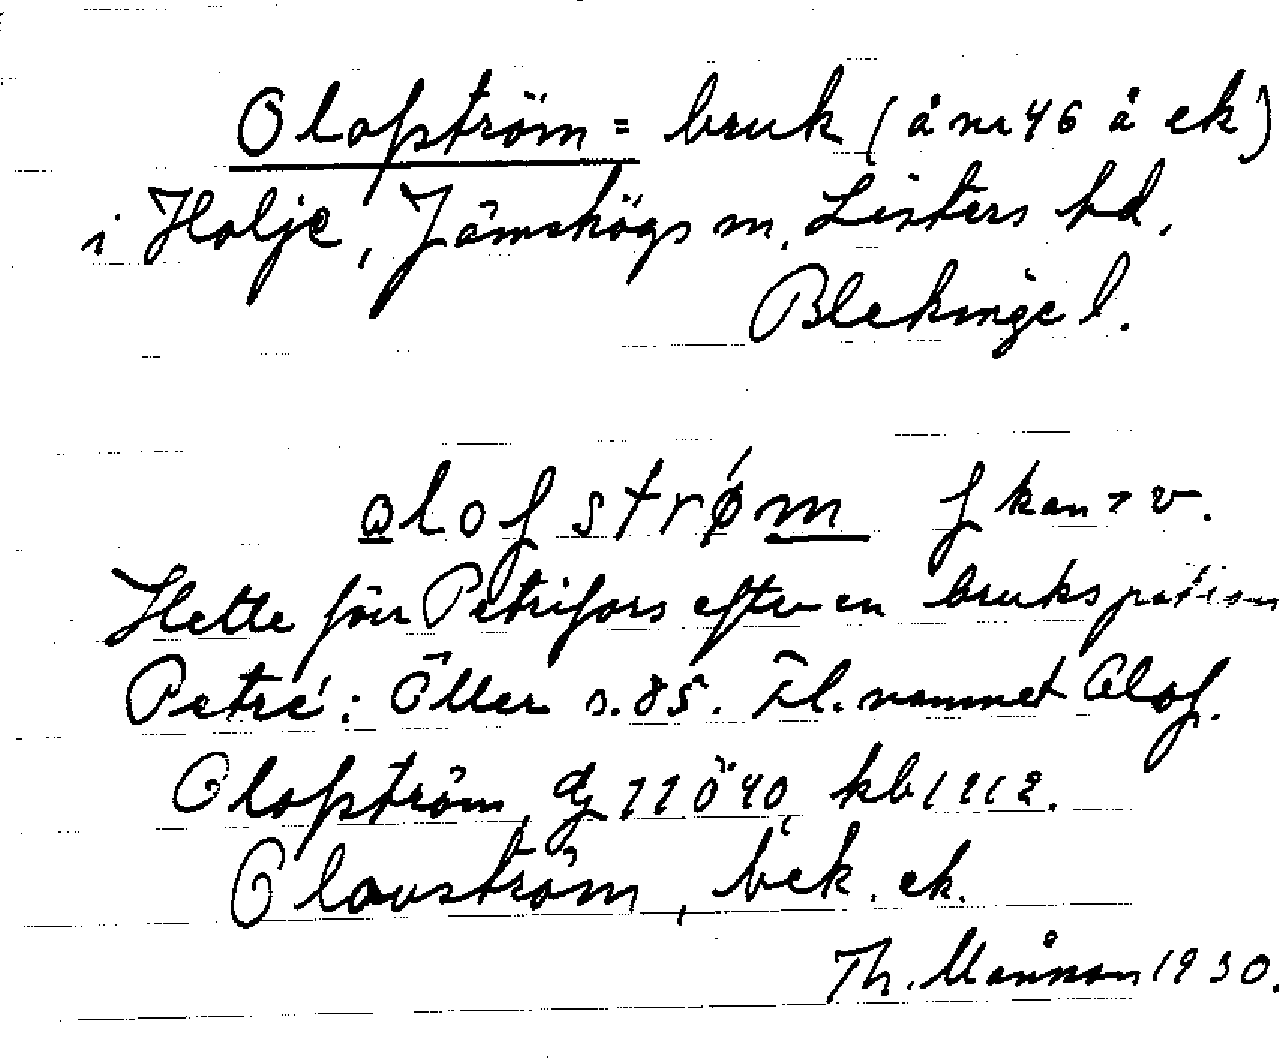 Olofström = bruk (å nr 46 å ek)
i Holje, Jämshögs sn, Listers hd,
Blekinge l.
olofstrøm f kan > v.
Hette förr Petrifors efter en brukspatron
Petré: Öller s. 85. Till. namnet Olof.
Olofström, kb 1812.
Olovström, bek. ek.
Th. Månson 1930.